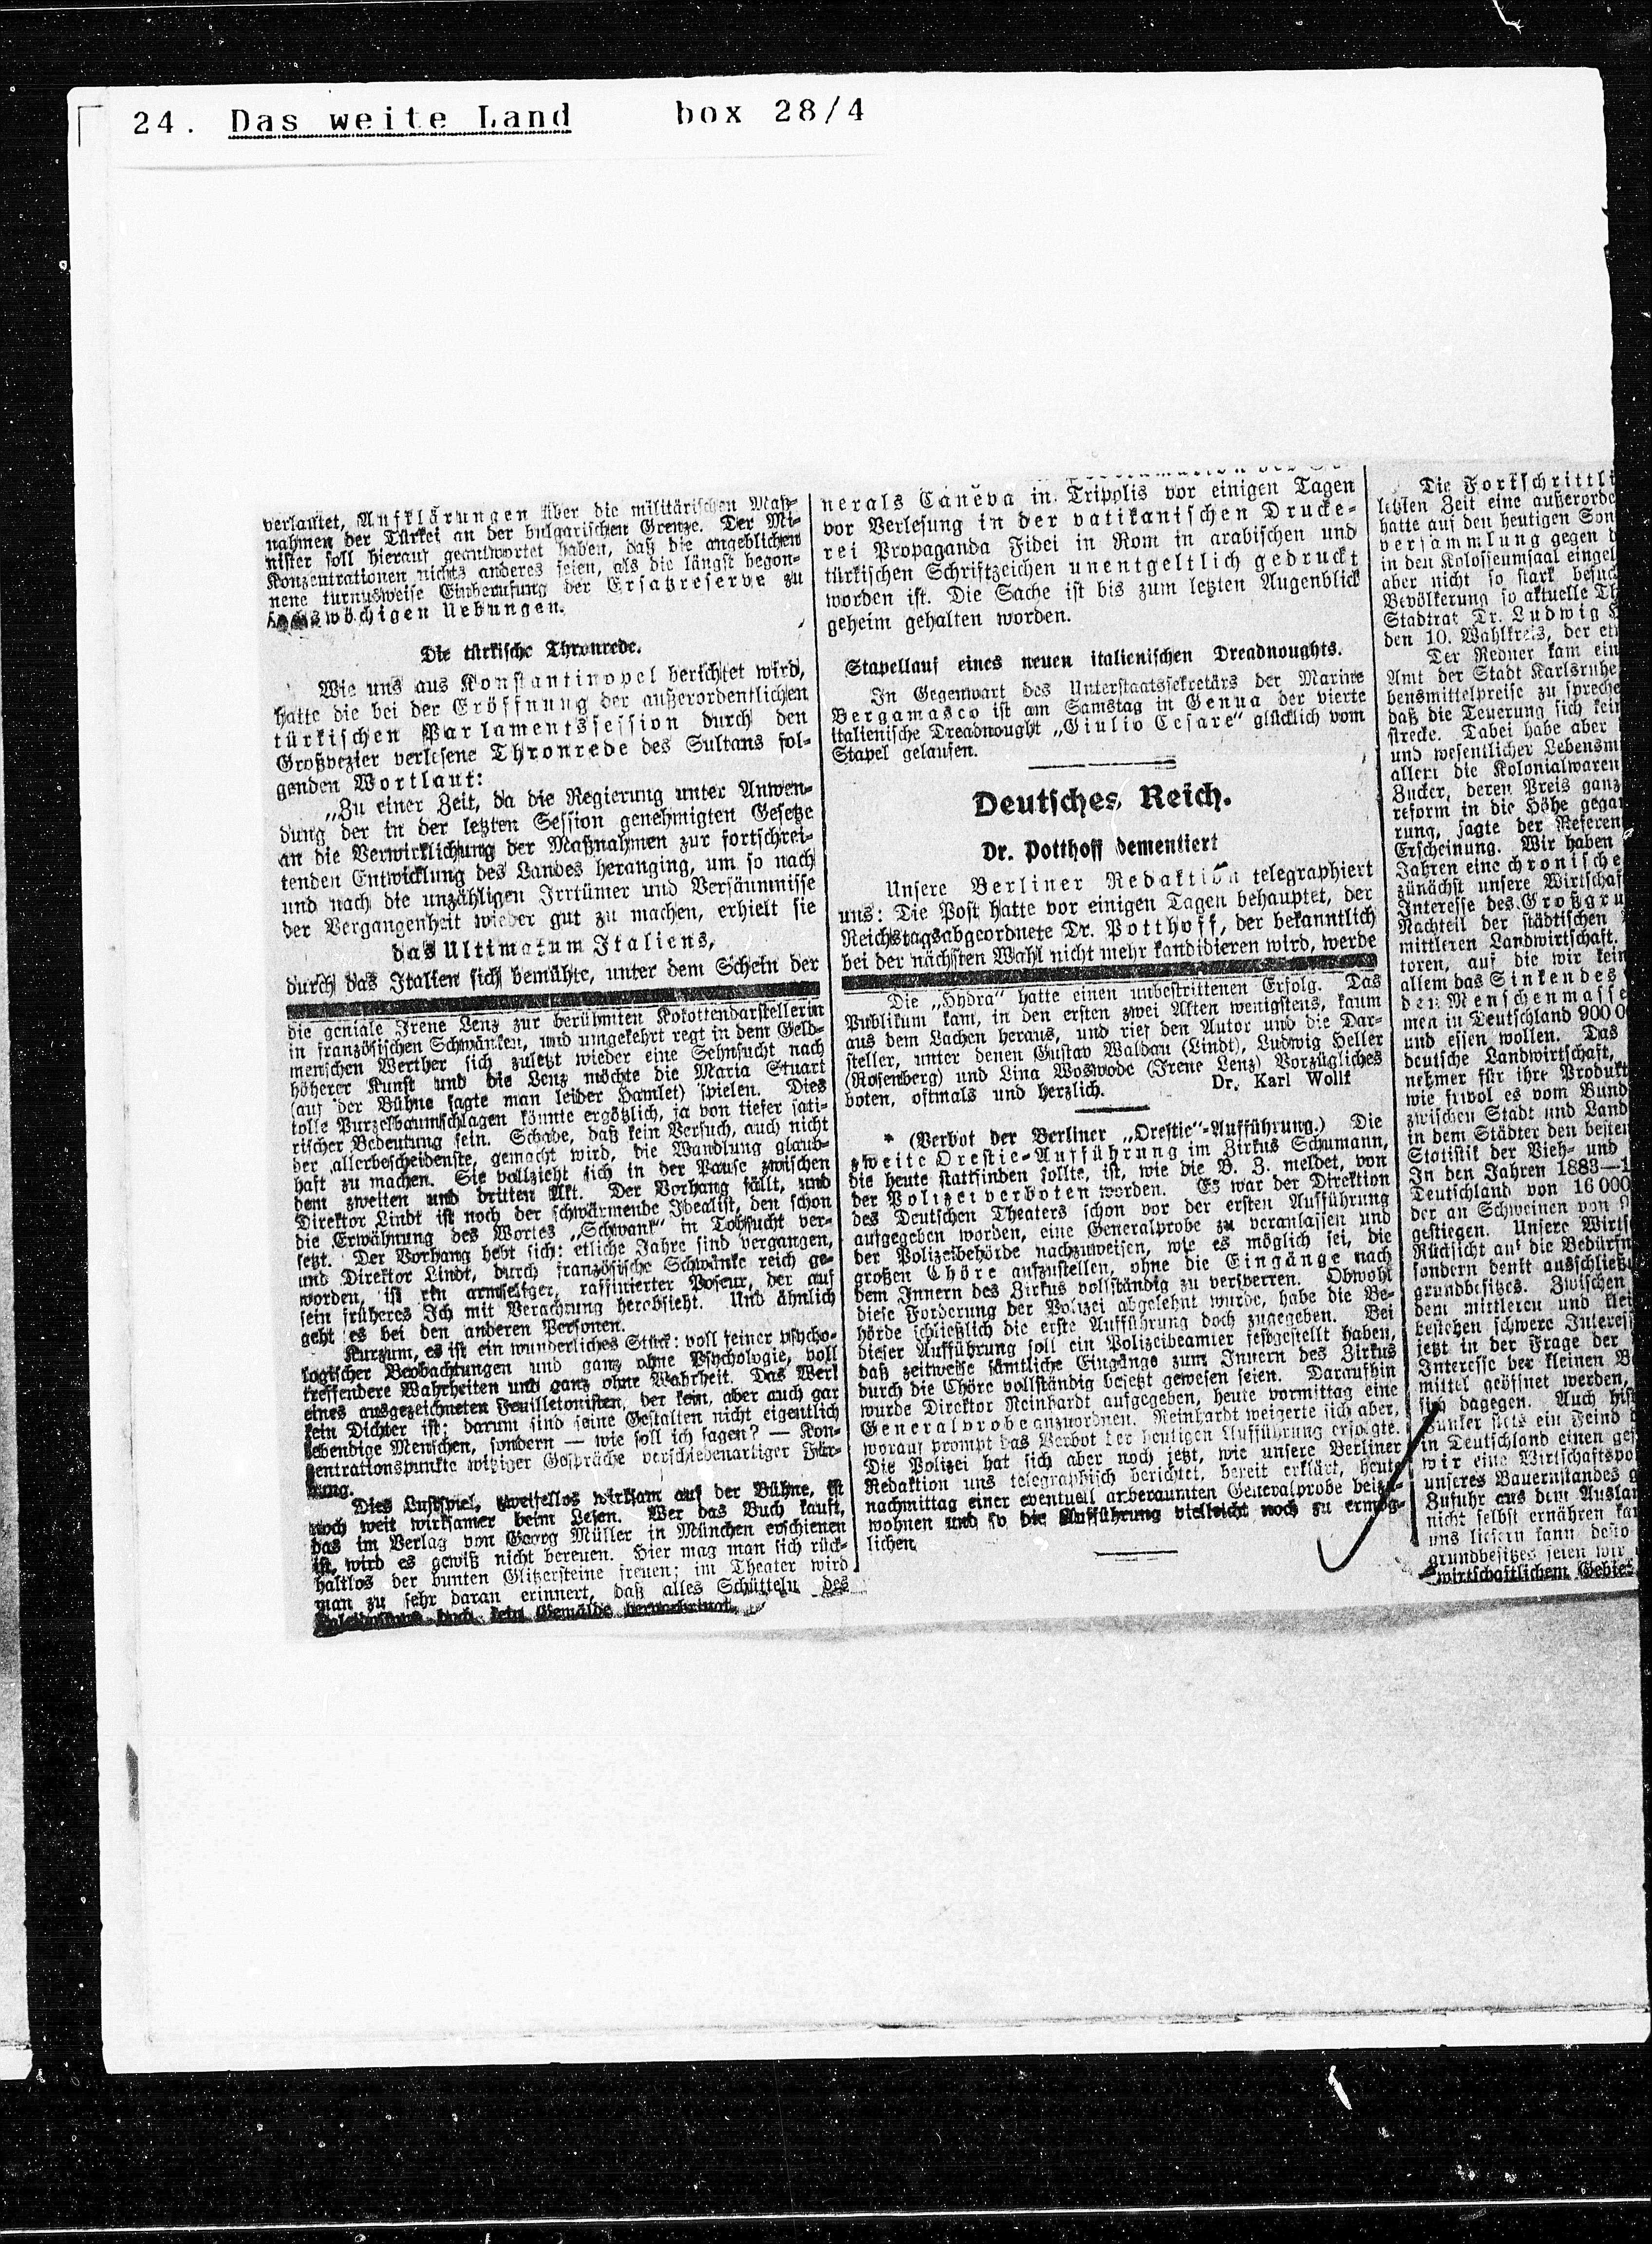 24. Das weite Land box 28/4
verlautet, Aufklärungen über die militärischen Maß-
nahmen der Türkei an der bulgarischen Grenze. Der Mi-
nister soll hierauf geantwortet haben, daß die angeblichen
Konzentrationen nichts anderes seien, als die längst begon-
nene turnusweise Einberufung der Ersatzreserve zu
wöchigen Uebungen.
Die türkische Thronrede.
Wie uns aus Konstantinopel berichtet wird,
hatte die bei der Eröffnung der außerordentlichen
türkischen Parlamentssession durch den
Großvezier verlesene Thronrede des Sultans fol-
genden Wortlaut:
„Zu einer Zeit, da die Regierung unter Anwen-
dung der in der letzten Session genehmigten Gesetze
an die Verwirklichung der Maßnahmen zur fortschrei-
tenden Entwicklung des Landes heranging, um so nach
und nach die unzähligen Irrtümer und Versäumnisse
der Vergangenheit wieder gut zu machen, erhielt sie
das Ultimatum Italiens,
durch das Italien sich bemühte, unter dem Schein der
die geniale Irene Lenz zur berühmten Kokottendarstellerin
in französischen Schwänken, und umgekehrt regt in dem Geld-
menschen Werther sich zuletzt wieder eine Sehnsucht nach
höherer Kunst und die Lenz möchte die Maria Stuart
(auf der Bühne sagte man leider Hamlet) spielen. Dies
tolle Purzelbaumschlagen könnte ergötzlich, ja von tiefer sati-
rischer Bedeutung sein. Schade, daß kein Versuch, auch nicht
der allerbescheidenste, gemacht wird, die Wandlung glaub-
haft zu machen. Sie vollzieht sich in der Pause zwischen
dem zweiten und dritten Akt. Der Vorhang fällt, und
Direktor Lindt ist noch der schwärmende Idealist, den schon
die Erwähnung des Wortes „Schwank“ in Tobsucht ver-
setzt. Der Vorhang hebt sich: etliche Jahre sind vergangen,
und Direktor Lindt, durch französische Schwänke reich ge-
worden, ist ein armseliger, raffinierter Poseur, der auf
sein früheres Ich mit Verachtung herabsieht. Und ähnlich
geht es bei den anderen Personen.
Kurzum, es ist ein wunderliches Stück: voll feiner psycho-
logischer Beobachtungen und ganz ohne Psychologie, voll
treffendere Wahrheiten und ganz ohne Wahrheit. Das Werk
eines ausgezeichneten Feuilletonisten, der kein, aber auch gar
kein Dichter ist; darum sind seine Gestalten nicht eigentlich
lebendige Menschen, sondern — wie soll ich sagen? — Kon-
zentrationspunkte witziger Gespräche verschiedenartiger Fär-
bung.
Dies Lustspiel, zweifellos wirksam auf der Bühne, ist
noch weit wirksamer beim Lesen. Wer das Buch kauft,
das im Verlag von Georg Müller in München erschienen
ist, wird es gewiß nicht bereuen. Hier mag man sich rück-
haltlos der bunten Glitzersteine freuen; im Theater wird
man zu sehr daran erinnert, daß alles Schütteln des
Kaleidoskops doch kein Gemälde
nerals Canêva in Tripolis vor einigen Tagen
vor Verlesung in der vatikanischen Drucke-
rei Propaganda Fidei in Rom in arabischen und
türkischen Schriftzeichen unentgeltlich gedruckt
worden ist. Die Sache ist bis zum letzten Augenblick
geheim gehalten worden.
Stapellauf eines neuen italienischen Dreadnoughts.
In Gegenwart des Unterstaatssekretärs der Marine
Bergamasco ist am Samstag in Genua der vierte
italienische Dreadnought „Giulio Cesare“ glücklich vom
Stapel gelaufen.
Deutsches Reich.
Dr. Potthoff dementiert
Unsere Berliner Redaktion telegraphiert
uns: Die Post hatte vor einigen Tagen behauptet, der
Reichstagsabgeordnete Dr. Potthoff, der bekanntlich
bei der nächsten Wahl nicht mehr kandidieren wird, werde
Die „Hydra“ hatte einen unbestrittenen Erfolg. Das
Publikum kam, in den ersten zwei Akten wenigstens, kaum
aus dem Lachen heraus, und rief den Autor und die Dar-
steller, unter denen Gustav Waldau (Lindt), Ludwig Heller
(Rosenberg) und Lina Woiwode (Irene Lenz) Vorzügliches
boten, oftmals und herzlich. Dr. Karl Wollf
* (Verbot der Berliner „Orestie“-Aufführung.) Die
zweite Orestie-Aufführung im Zirkus Schumann,
die heute stattfinden sollte, ist, wie die B. Z. meldet, von
der Polizei verboten worden. Es war der Direktion
des Deutschen Theaters schon vor der ersten Aufführung
aufgegeben worden, eine Generalprobe zu veranlassen und
der Polizeibehörde nachzuweisen, wie es möglich sei, die
großen Chöre aufzustellen, ohne die Eingänge nach
dem Innern des Zirkus vollständig zu versperren. Obwohl
diese Forderung der Polizei abgelehnt wurde, habe die Be-
hörde schließlich die erste Aufführung doch zugegeben. Bei
dieser Aufführung soll ein Polizeibeamter festgestellt haben,
daß zeitweise sämtliche Eingänge zum Innern des Zirkus
durch die Chöre vollständig besetzt gewesen seien. Daraufhin
wurde Direktor Reinhardt aufgegeben, heute vormittag eine
Generalprobe anzuordnen. Reinhardt weigerte sich aber,
worauf prompt das Verbot der heutigen Aufführung erfolgte.
Die Polizei hat sich aber noch jetzt, wie unsere Berliner
Redaktion uns telegraphisch berichtet, bereit erklärt, heute
nachmittag einer eventuell anberaumten Generalprobe beizu-
wohnen und so die Aufführung vielleicht noch zu ermög-
lichen.
Die Fortschrittli
letzten Zeit eine außerorde
hatte auf den heutigen Son
versammlung gegen d
in den Kolosseumsaal eingel
aber nicht so stark besuc
Bevölkerung so aktuelle Th
Stadtrat Dr. Ludwig
den 10. Wahlkreis, der
Der Redner kam ein
Amt der Stadt Karlsruhe
bensmittelpreise zu spreche
daß die Teuerung sich kein
strecke. Dabei habe aber
und wesentlicher Lebensm
allem die Kolonialwaren
Zucker, deren Preis ganz
reform in die Höhe gegan
rung, sagte der Referen
Erscheinung. Wir haben
Jahren eine chronische
zunächst unsere Wirtschaf
Interesse des Großgru
Nachteil der städtischen
mittleren Landwirtschaft.
toren, auf die wir kein
allem das Sinken des
der Menschenmasse
men in Deutschland 900 0
und essen wollen. Das
deutsche Landwirtschaft,
nehmer für ihre Produkt
wie frivol es vom Bund
zwischen Stadt und Land
in dem Städter den besten
Statistik der Vieh- und
In den Jahren 1883—1
Deutschland von 16 000
der an Schweinen von
gestiegen. Unsere Wirts
Rücksicht auf die Bedürfn
sondern denkt ausschließ
grundbesitzes. Zwischen
dem mittleren und klei
bestehen schwere Interess
jetzt in der Frage der
Interesse der kleinen B
mittel geöffnet werden,
sich dagegen. Auch hist
Junker stets ein Feind d
in Deutschland einen ges
wir eine Wirtschaftspo
unseres Bauernstandes g
Zufuhr aus dem Auslan
nicht selbst ernähren kan
uns liefern kann desto
grundbesitzes seien wir
wirtschaftlichem Gebie